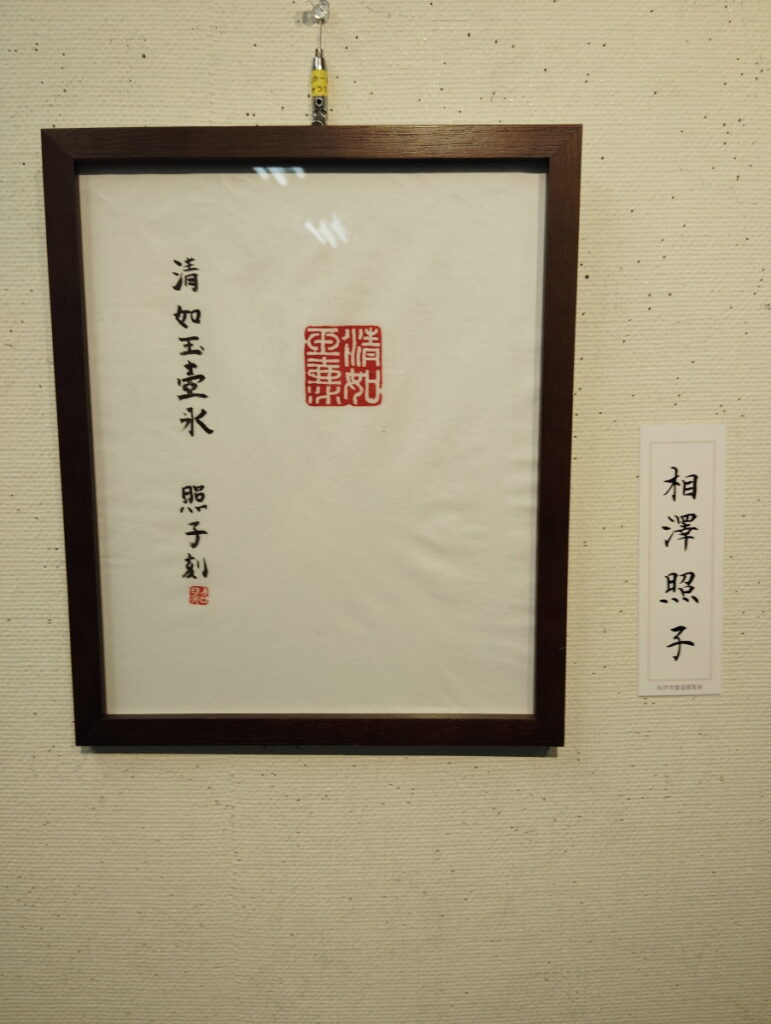 清如玉壺氷
照子刻
清如
玉壺氷
相澤照子